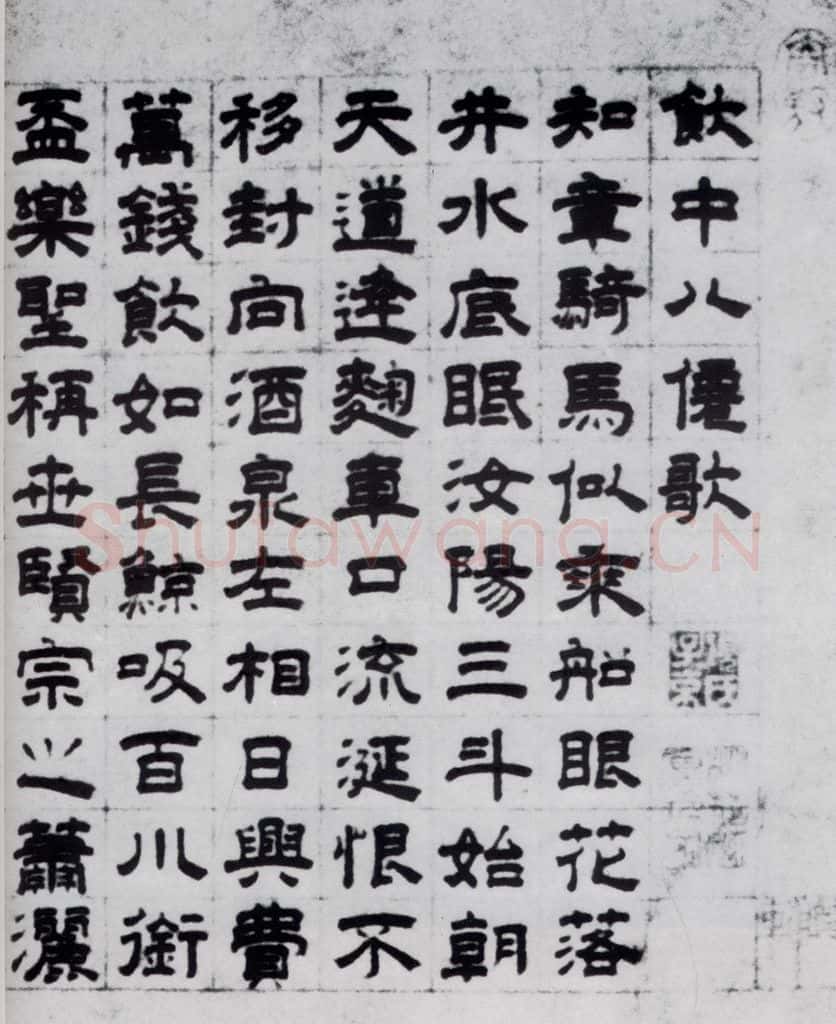 飲中八僊歌
知章騎馬似乘船眼花落
井水底眠汝陽三斗始朝
天道逢麴車口流涎恨不
移封向酒泉左相日興費
萬錢飲如長鯨吸百川銜
盃樂聖稱世賢宗之蕭灑
Shufawang.CN